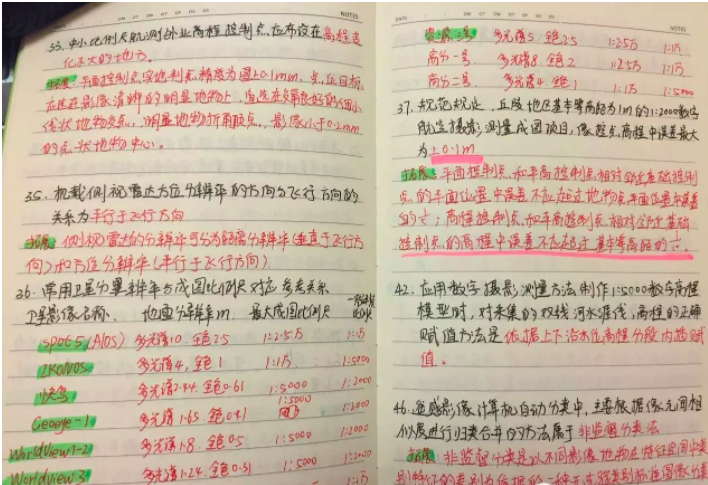 NOTES
33. 中小比例尺航测外业高程控制点应布设在高程变
化不大的地方。
拓展: 平面控制点实地判点精度为图上0.1mm,点位目标
应选在影像清晰的明显地物上,宜选在交角良好的细小
线状地物交点、明显地物折角顶点、影像小于0.2mm
的点状地物中心。
35. 机载侧视雷达方位分辨率的方向与飞行方向的
关系为平行于飞行方向
拓展: 侧视雷达的分辨率可分为距离分辨率(垂直于飞行方
向)和方位分辨率(平行于飞行方向)
36. 常用卫星分辨率与成图比例尺对应参考关系
卫星影像名称 地面分辨率m 最大成图比例尺
spot5(Alos) 多光谱10. 全色2.5 1:2.5万 1:1万
IKONOS 多光谱4, 全色1 1:1万 1:5000
快鸟 多光谱2.44. 全色0.61 1:5000 1:2000
Geoeye-1 多光谱1.65 全色0.41 1:5000 1:2000
WorldView1-2 多光谱1.8. 全色0.5 1:5000 1:2000
Worldview3 多光谱1.24. 全色0.31 1:5000
DATE
NOTES
资源三号 多光谱5 全色2.5 1:2.5万 1:1万
高分一号 多光谱8 全色2 1:2.5万 1:1万
高分二号 多光谱4. 全色1 1:1万 1:5000
37. 规范规定,丘陵地区基本等高距为1m的1:2000数字
航空摄影测量成图项目,像控点高程中误差最大
为±0.1m
拓展: 平面控制点和平高控制点相对邻近基础控制
点的平面位置中误差不应超过地物点平面位置中误差
的1/5; 高程控制点和平高控制点相对邻近基础
控制点的高程中误差不应超过基本等高距的
42. 应用数字摄影测量方法制作1:5000数字高程
模型时,对采集的双线河水涯线,高程的正确
赋值方法是依据上下游水位高程分段内插赋
值。
46. 遥感影像计算机自动分类中,主要依据像元间相
似度进行归类合并的方法属于非监督分类法
拓展: 非监督分类是以不同影像地物在特征空间中类